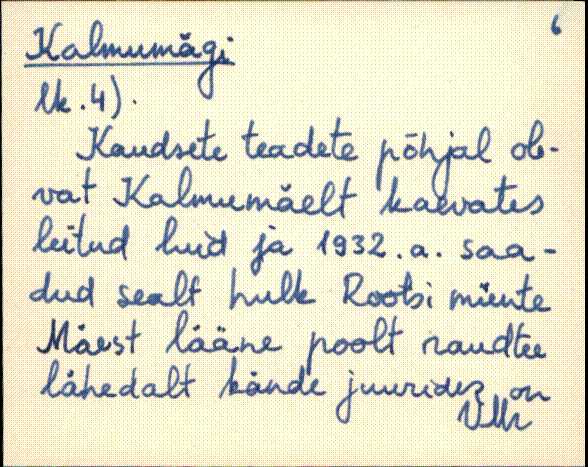 6
Kalmumägi
lk. 4).
Kaudsete teadete põhjal ole-
vat Kalmumäelt kaevates
leitud luid ja 1932. a. saa-
dud sealt hulk Rootsi münte
Mäest lääne poolt raudtee
lähedalt kände juurides on